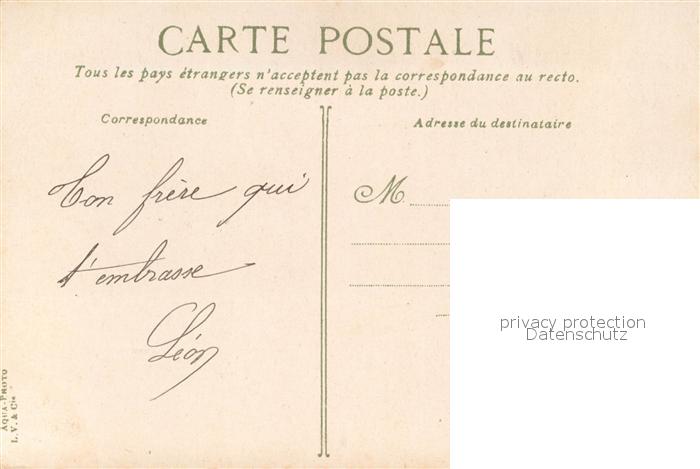 CARTE POSTALE
Tous les pays étrangers n'acceptent pas la correspondance au recto.
(Se renseigner à la poste.)
Correspondance
Adresse du destinataire
Ton frère qui
t'embrasse
Léon
M
privacy protection
Datenschutz
AQUA-PHOTO
L. V. & Cie